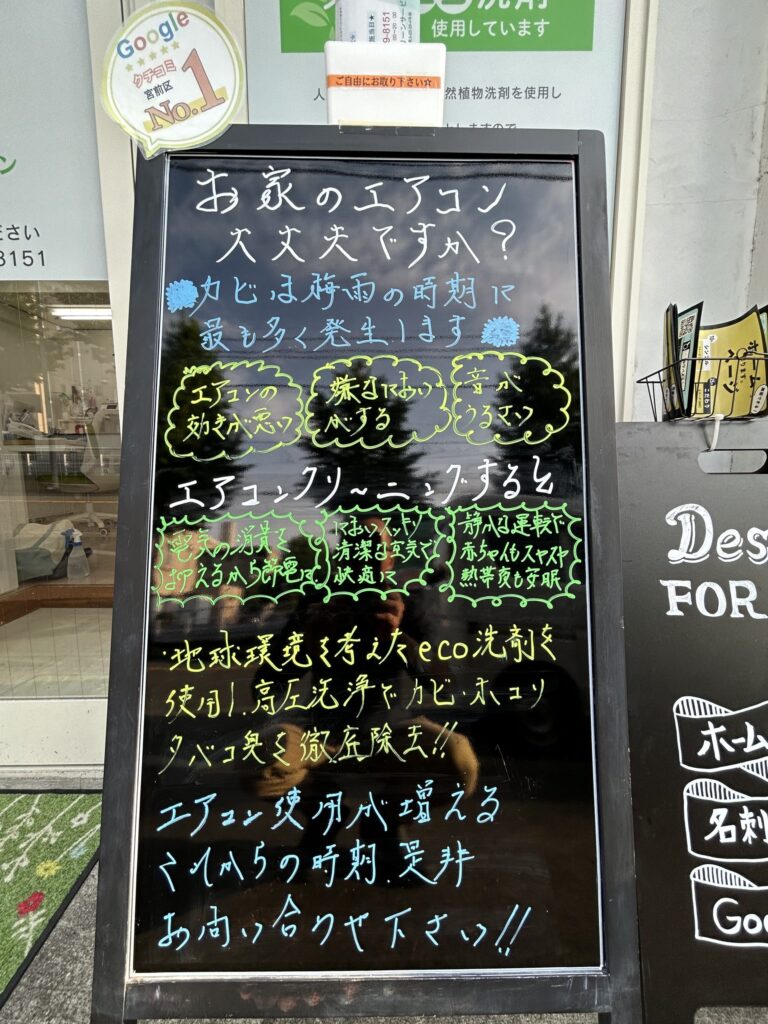 洗剤
使用しています
ご自由にお取り下さい☆
然植物洗剤を使用し
Google
★★★★★
クチコミ
宮前区
No.1
ださい
8151
お家のエアコン
大丈夫ですか?
カビは梅雨の時期に
最も多く発生します
エアコンの
効きが悪い
嫌なにおい
がする
音が
うるさい
エアコンクリーニングすると
電気の消費を
抑えるから節電に
においスッキリ
清潔な空気で
快適に
静かな運転で
赤ちゃんもスヤスヤ
熱帯夜も安眠
・地球環境を考えたeco洗剤を
使用し、高圧洗浄でカビ・ホコリ
タバコ臭を徹底除去!!
エアコン使用が増える
これからの時期、是非
お問い合わせ下さい!!
Des
FOR
ホーム
名刺
Goo